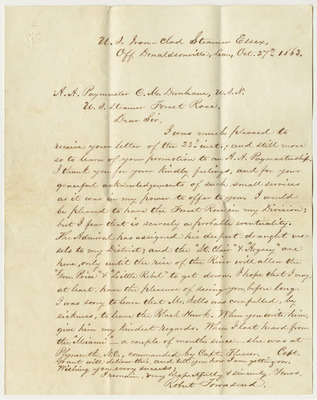 U. S. Iron-clad Steamer Essex,
Off Donaldsonville, Lou, Oct. 27th 1863.
A. A. Paymaster C. M. Denham, U.S.N.
U. S. Steamer Forest Rose.
Dear Sir.
I was much pleased to
receive your letter of the 23d inst; and still more
so to learn of your promotion to an A. A. Paymastership.
I thank you for your kindly feelings, and for your
graceful acknowledgements of such small services
as it was in my power to offer to you. I would
be pleased to have the Forest Rose in my Division;
but I fear that is scarcely a probable eventuality.
The Admiral has assigned his deepest draught ves-
sels to my district; and the "St. Clair" & are
here, only until the rise of the River will allow the
"Gen. Price" & "Little Rebel" to get down. I hope that I may,
at least, have the pleasure of seeing you, before long.
I was sorry to learn that Mr. Sells was compelled, by
sickness, to leave the Black Hawk. When you write him,
give him my kindest regards. When I last heard from
the "Miami" - a couple of months since - she was at
Plymouth, N.C., commanded by Capt. Flusser. Capt.
Grant will deliver this, and tell you how I am getting on.
Wishing you every success;
I remain, very respectfully & sincerely Yours.
Robert Townsend.